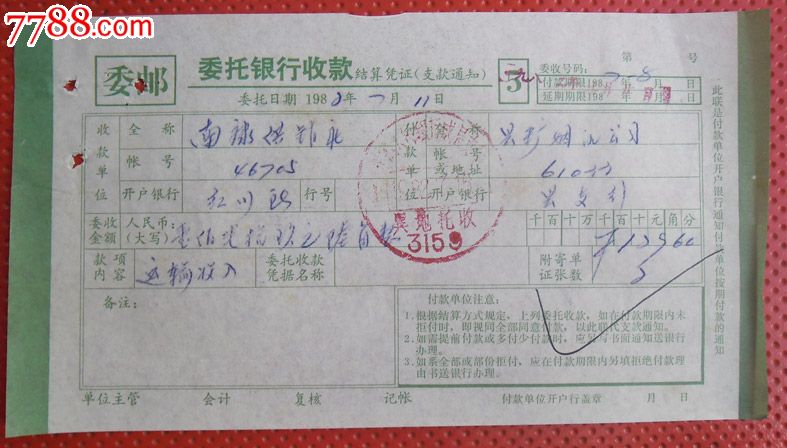 7788.com
第 号
委邮 委托银行收款 结算凭证(支款通知) 5 委收号码:
付款期限198 年 月 日
委托日期 1982年 7月 11日 延期期限198 年 月 日
收款单位 全称 付款单位 全称
帐号 46705 帐号或地址
开户银行 行号 开户银行
委收金额 人民币:(大写) 千百十万千百十元角分
托收
3159
款项内容 运输收入 委托收款凭据名称 附寄单证张数 3
备注:
付款单位注意:
1.根据结算方式规定,上列委托收款,如在付款期限内未
拒付时,即视同全部同意付款,以此联代支款通知。
2.如需提前付款或多付少付款时,应另写书面通知送银行
办理。
3.如系全部或部份拒付,应在付款期限内另填拒绝付款理
由书送银行办理。
单位主管 会计 复核 记帐 付款单位开户行盖章 月 日
此联是付款单位开户银行通知付款单位按期付款的通知